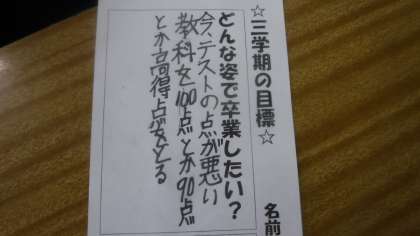 ☆三学期の目標☆
名前
どんな姿で卒業したい？
今、テストの点が悪い
教科を100点とか90点
とか高得点をとる